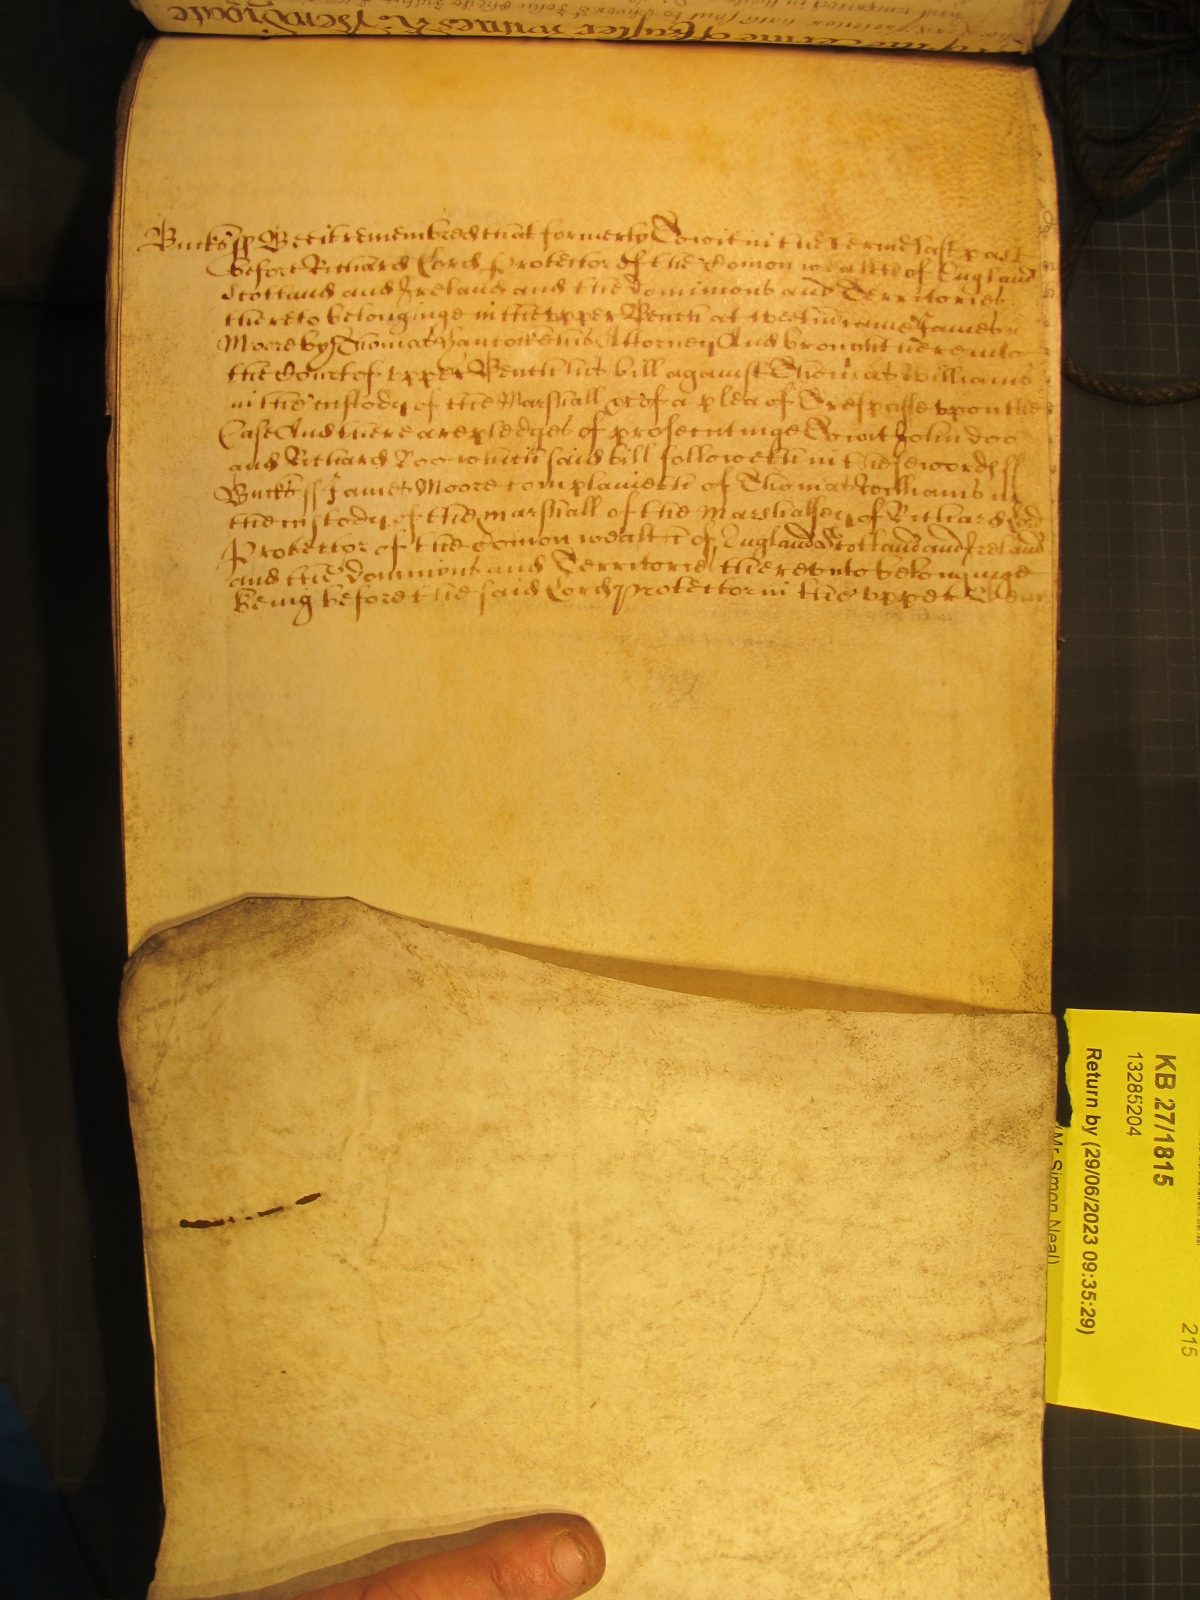 Bucks ss Bee it remembred that formerly To wit in the terme last past
before Richard Lord Protector of the Comon wealth of England
Scotland and Ireland and the dominions and Territories
thereto belonginge in the vpper Bench at westm came James
Moore by Thomas his Attorney And brought here into
the Court of vpper Bench his bill against Thomas Williams
in the custody of the Marshall &c of a plea of Trespasse vpon the
Case And there are pledges of prosecutinge To wit John doo
and Richard Roo which said bill followeth in these words ss
Bucks ss James Moore complaineth of Thomas Williams in
the custody of the marshall of the Marshalsey of Richard Lord
Protector of the Comon wealth of England Scotland and Ireland
and the dominions and Territories therevnto belonginge
being before the said Lord Protector in the vpper Bench
KB 27/1815
13285204
Return by (29/06/2023 09:35:29)
(Mr Simon Neal)
215